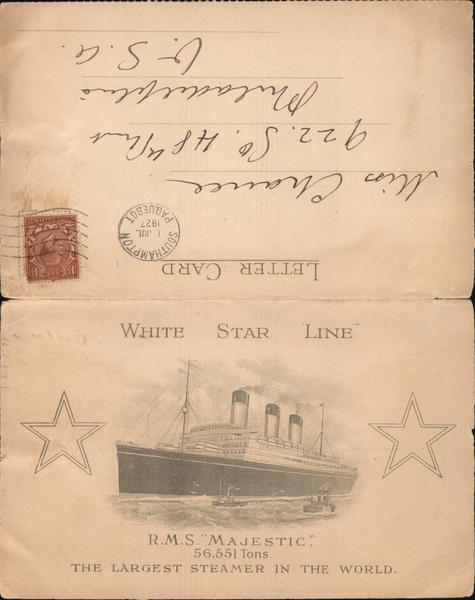 LETTER CARD
SOUTHAMPTON
1 JUL
1927
PAQUEBOT
Miss Chance
922. So. 48th
Philadelphia
U. S. A.
WHITE STAR LINE
R.M.S. "MAJESTIC",
56,551 Tons.
THE LARGEST STEAMER IN THE WORLD.